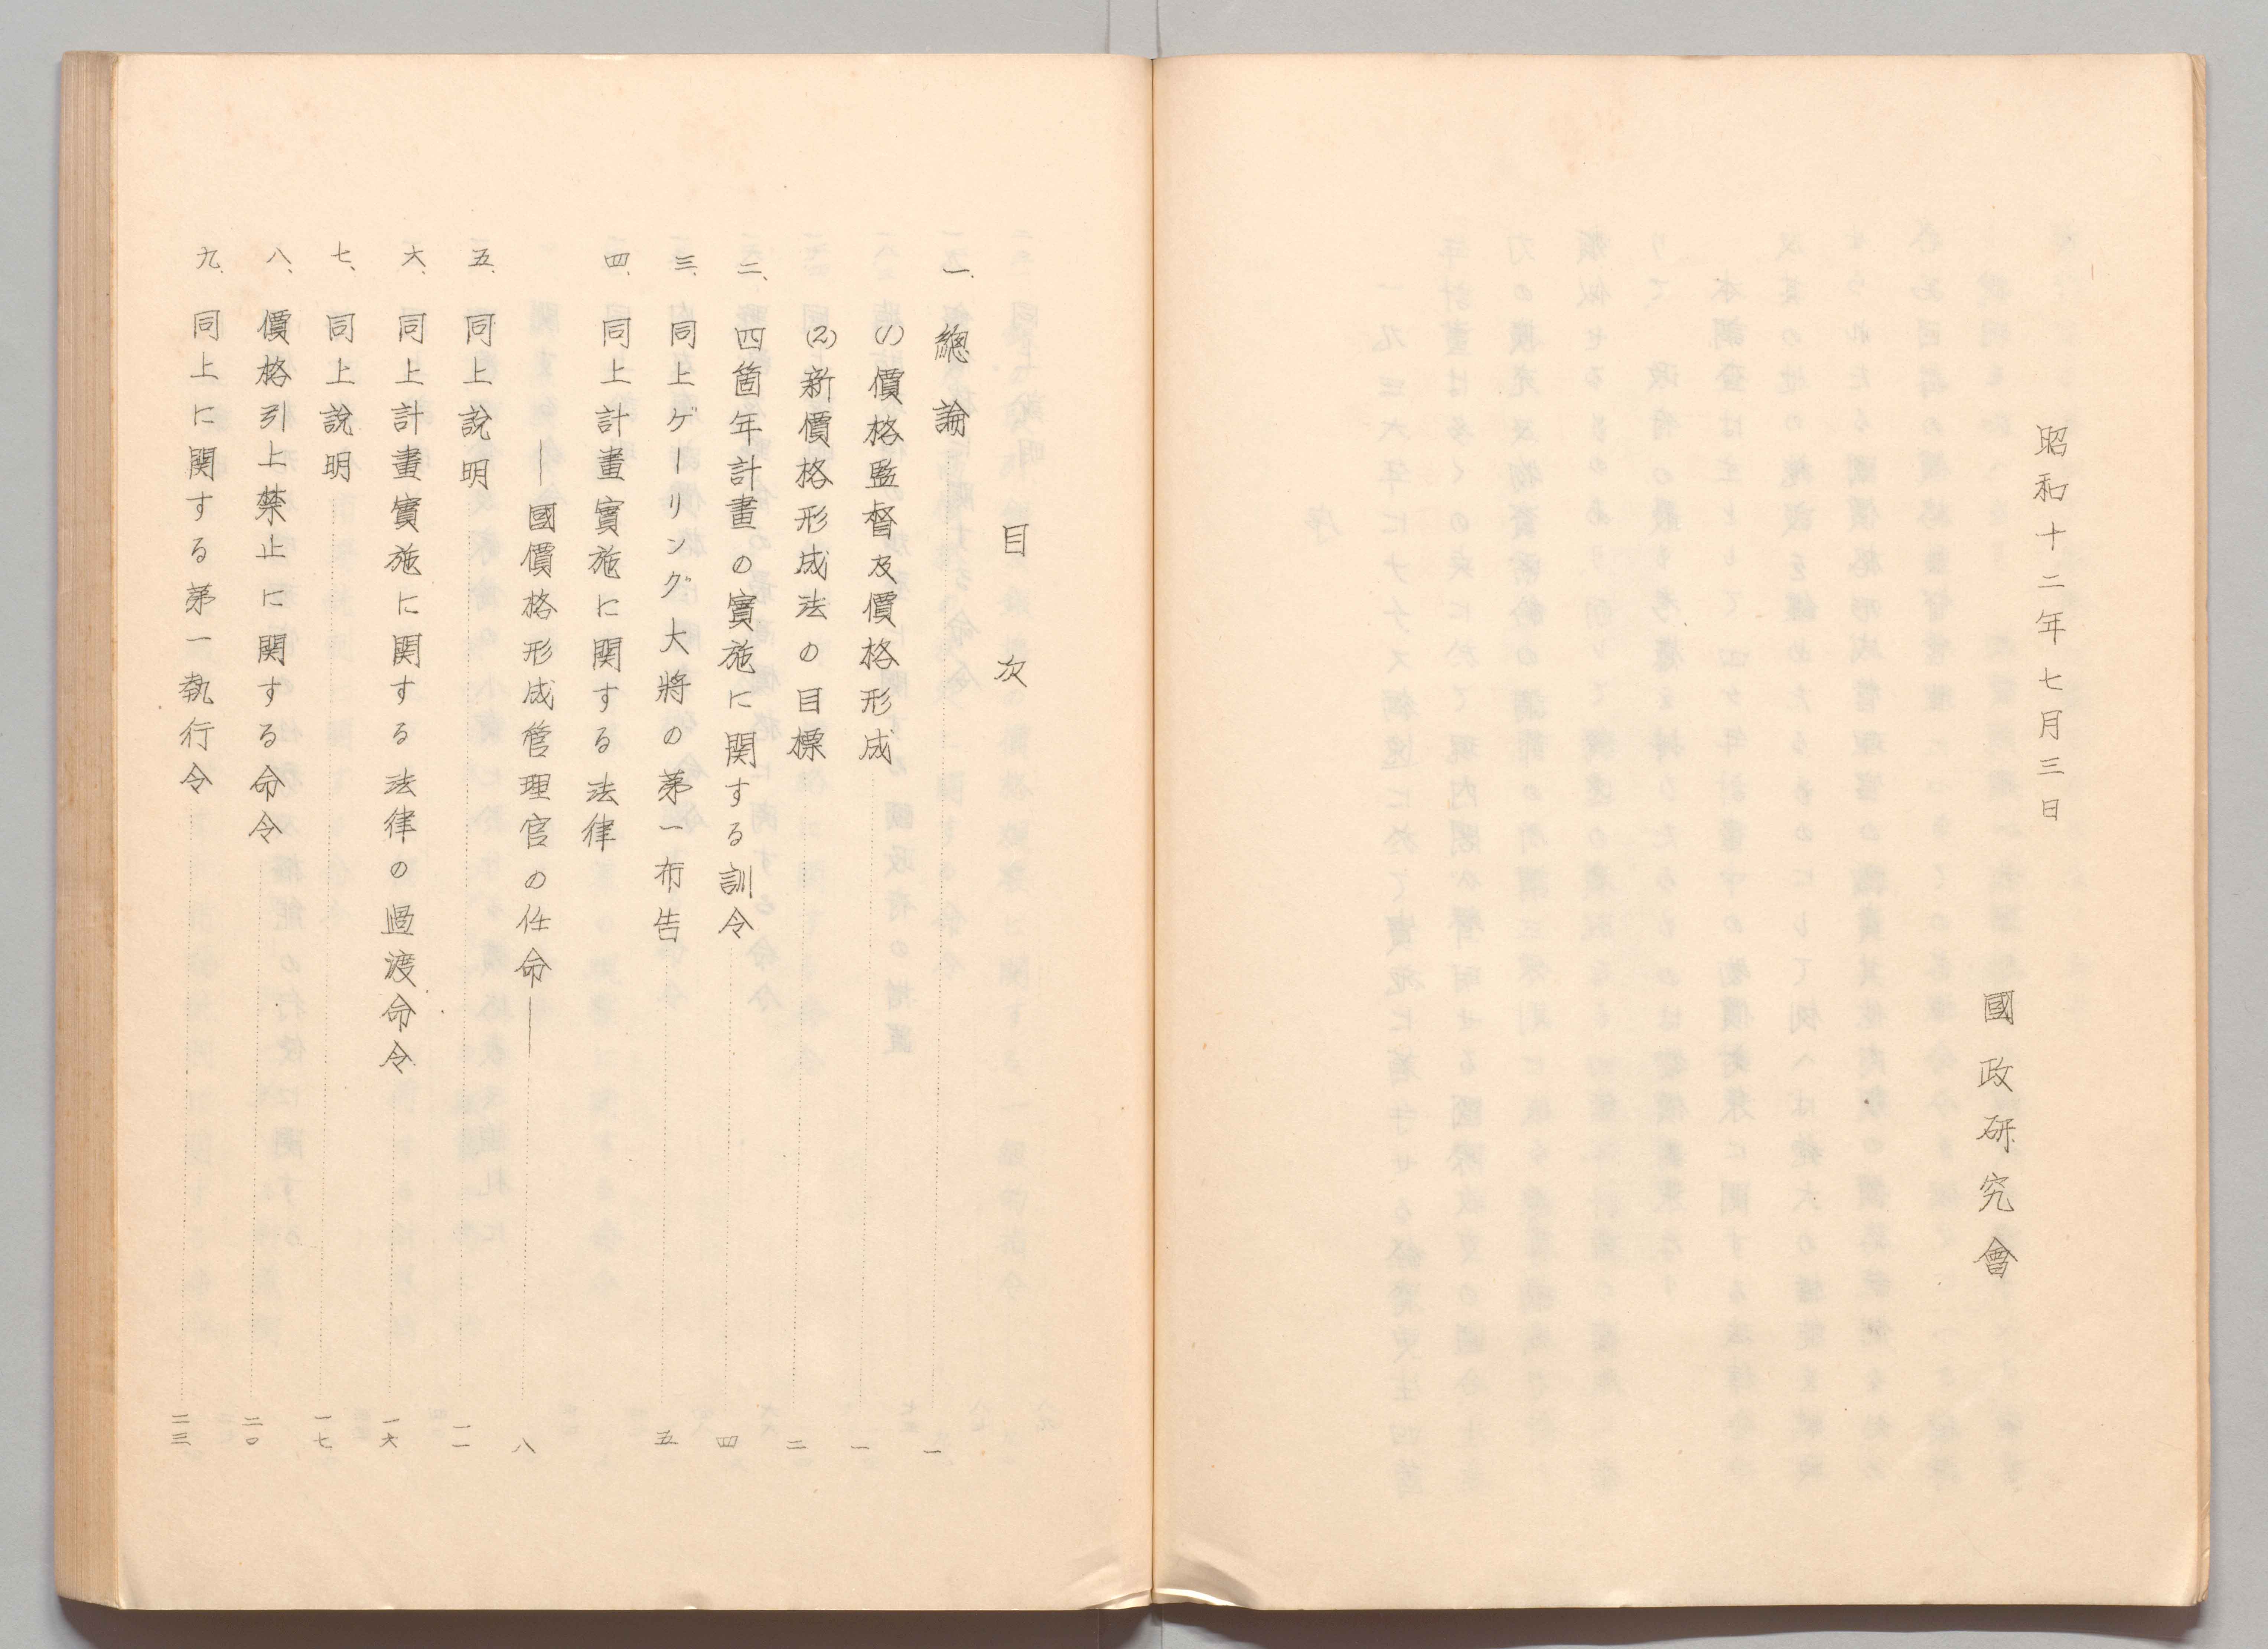 昭和十二年七月三日
國政研究會
目次
一、總論 一
(1)價格監督及價格形成 一
(2)新價格形成法の目標 二
二、四箇年計畫の實施に関する訓令 四
三、同上ゲーリング大將の第一布告 五
四、同上計畫實施に関する法律
―國價格形成管理官の任命― 八
五、同上說明 一一
六、同上計畫實施に関する法律の過渡命令 一六
七、同上說明 一七
八、價格引上禁止に関する命令 二〇
九、同上に関する第一執行令 二三